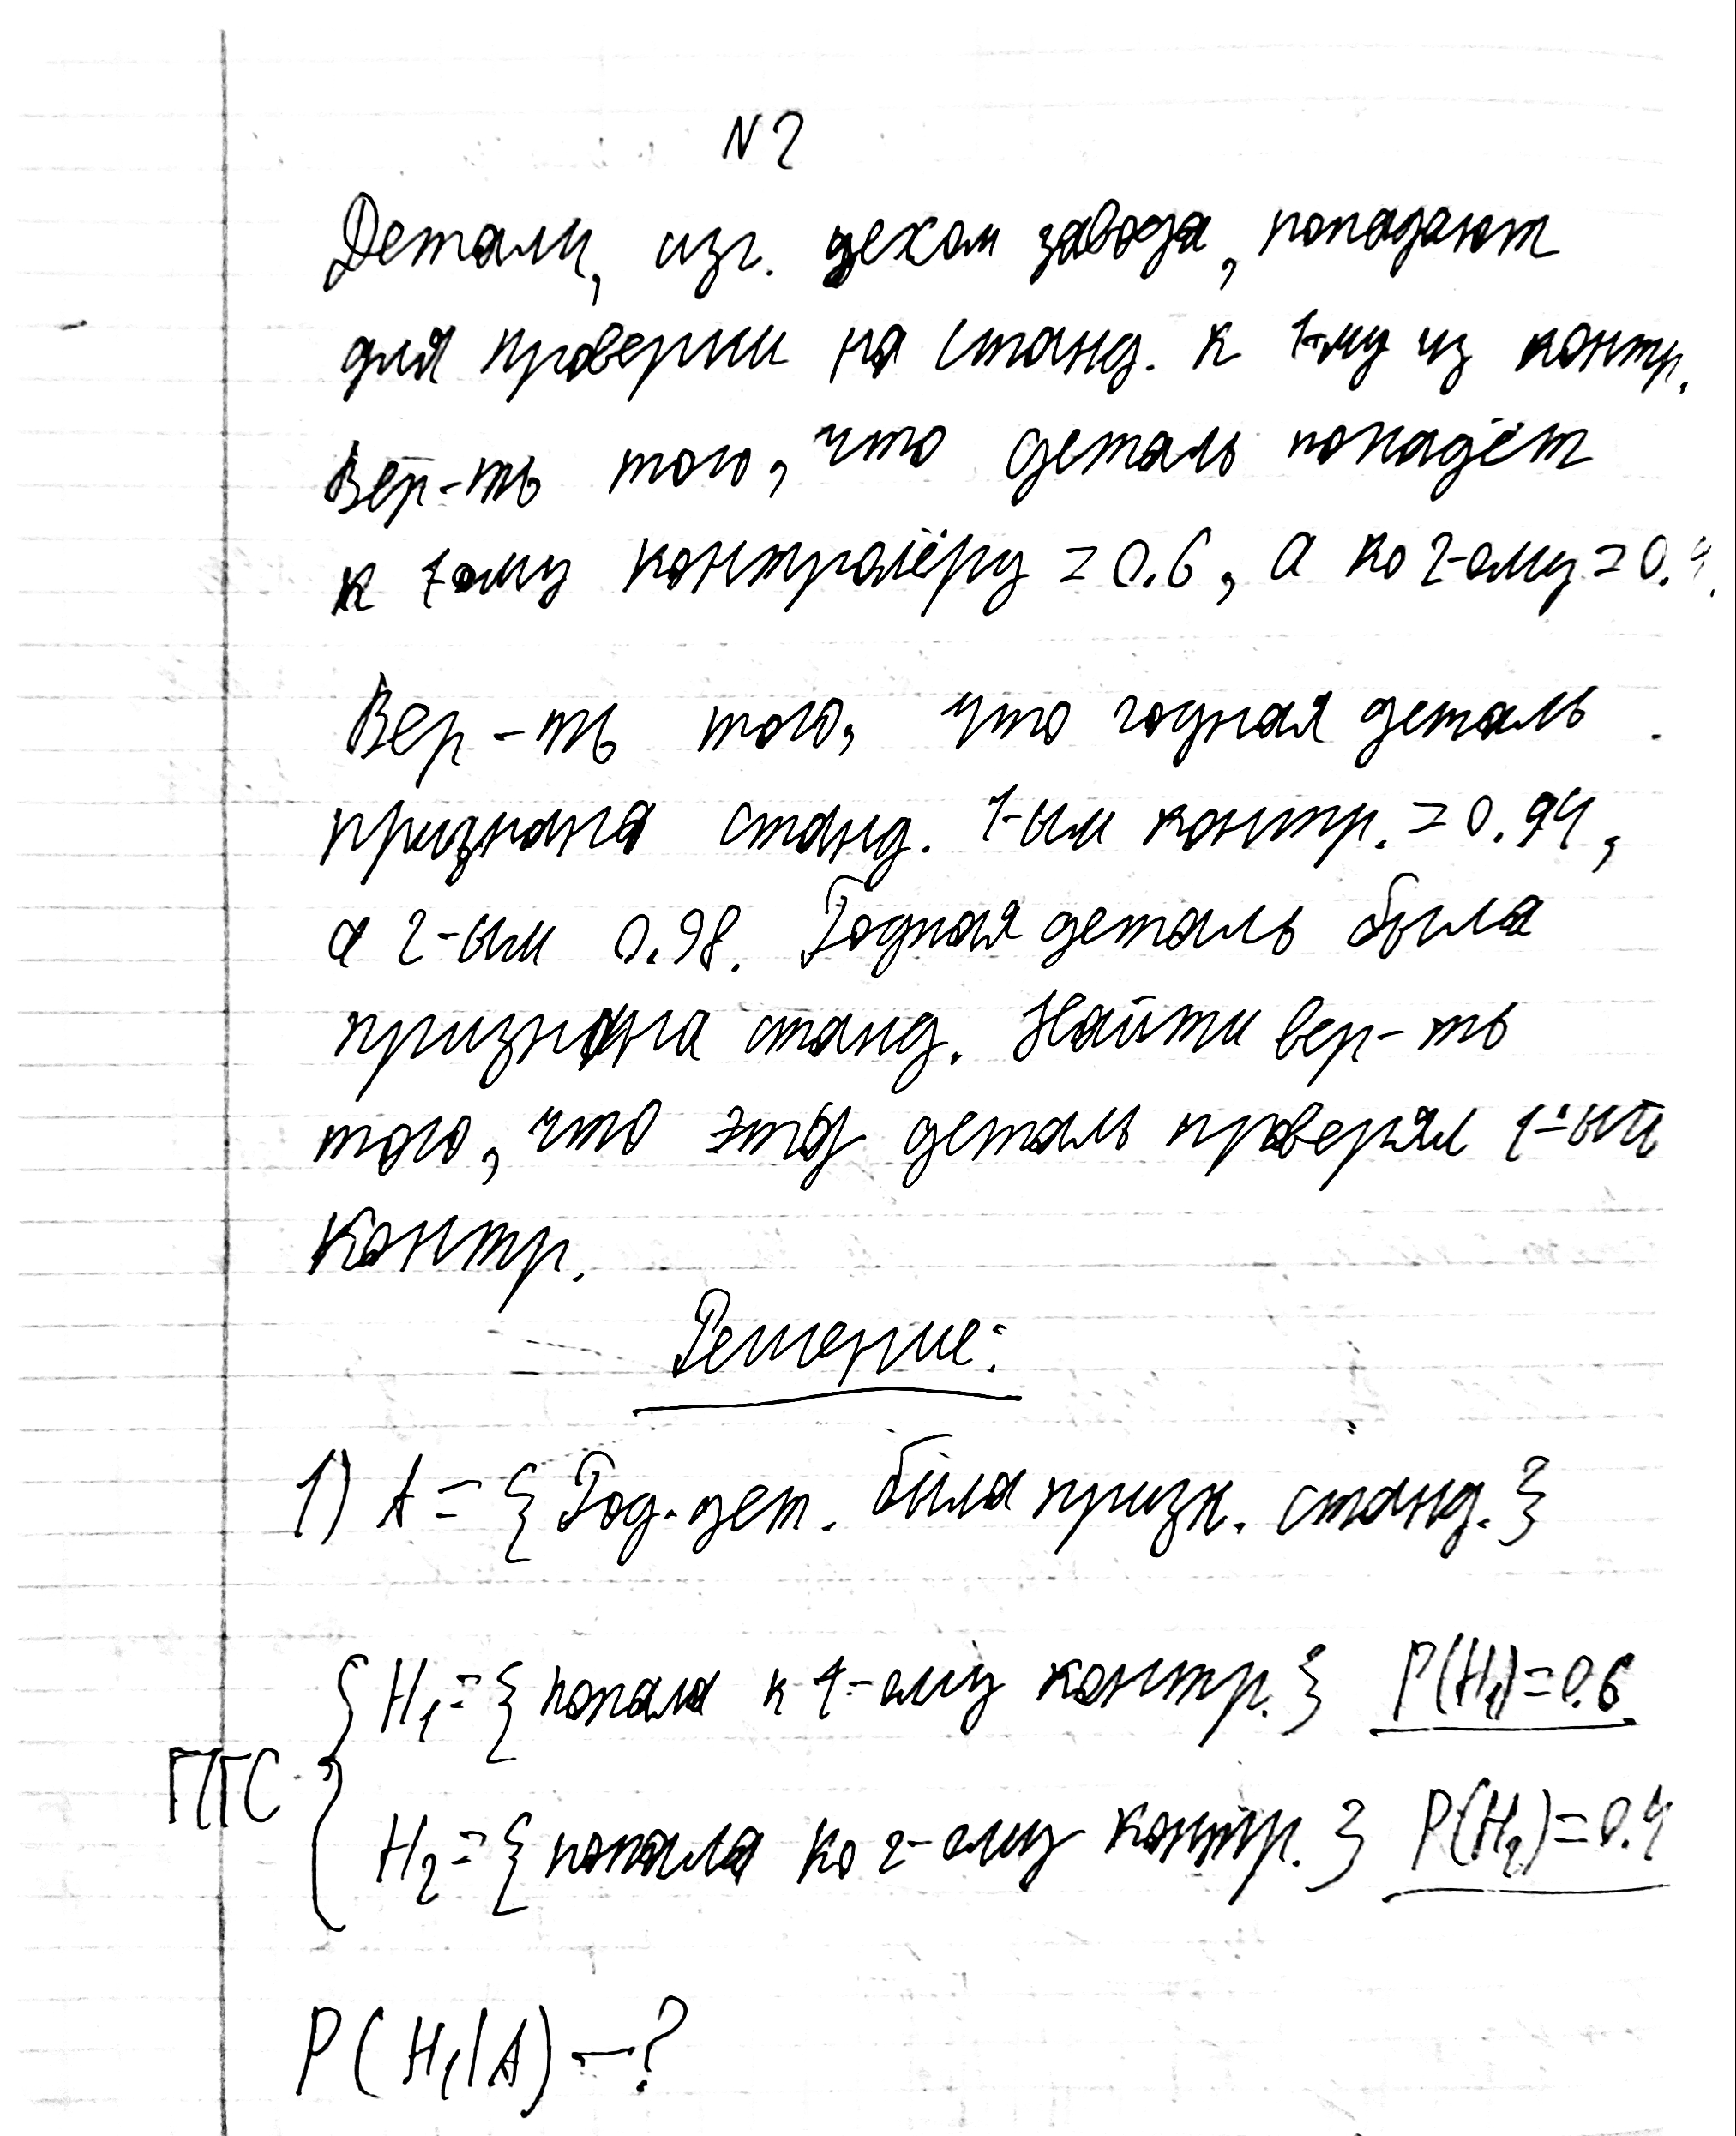 N2
Детали, изг. цехом завода, попадают
для проверки на станд. к 1-му из контр.
Вер-ть того, что деталь попадёт
к 1-ому контролёру = 0.6, а ко 2-ому = 0.4.
Вер-ть того, что годная деталь
признана станд. 1-ым контр. = 0.94,
а 2-ым 0.98. Годная деталь была
признана станд. Найти вер-ть
того, что эту деталь проверял 1-ый
контр.
Решение:
1) A = { Год. дет. была призн. станд. }
H₁ = { попала к 1-ому контр. } P(H₁)=0.6
ПГС
H₂ = { попала ко 2-ому контр. } P(H₂)=0.4
P(H₁|A) - ?